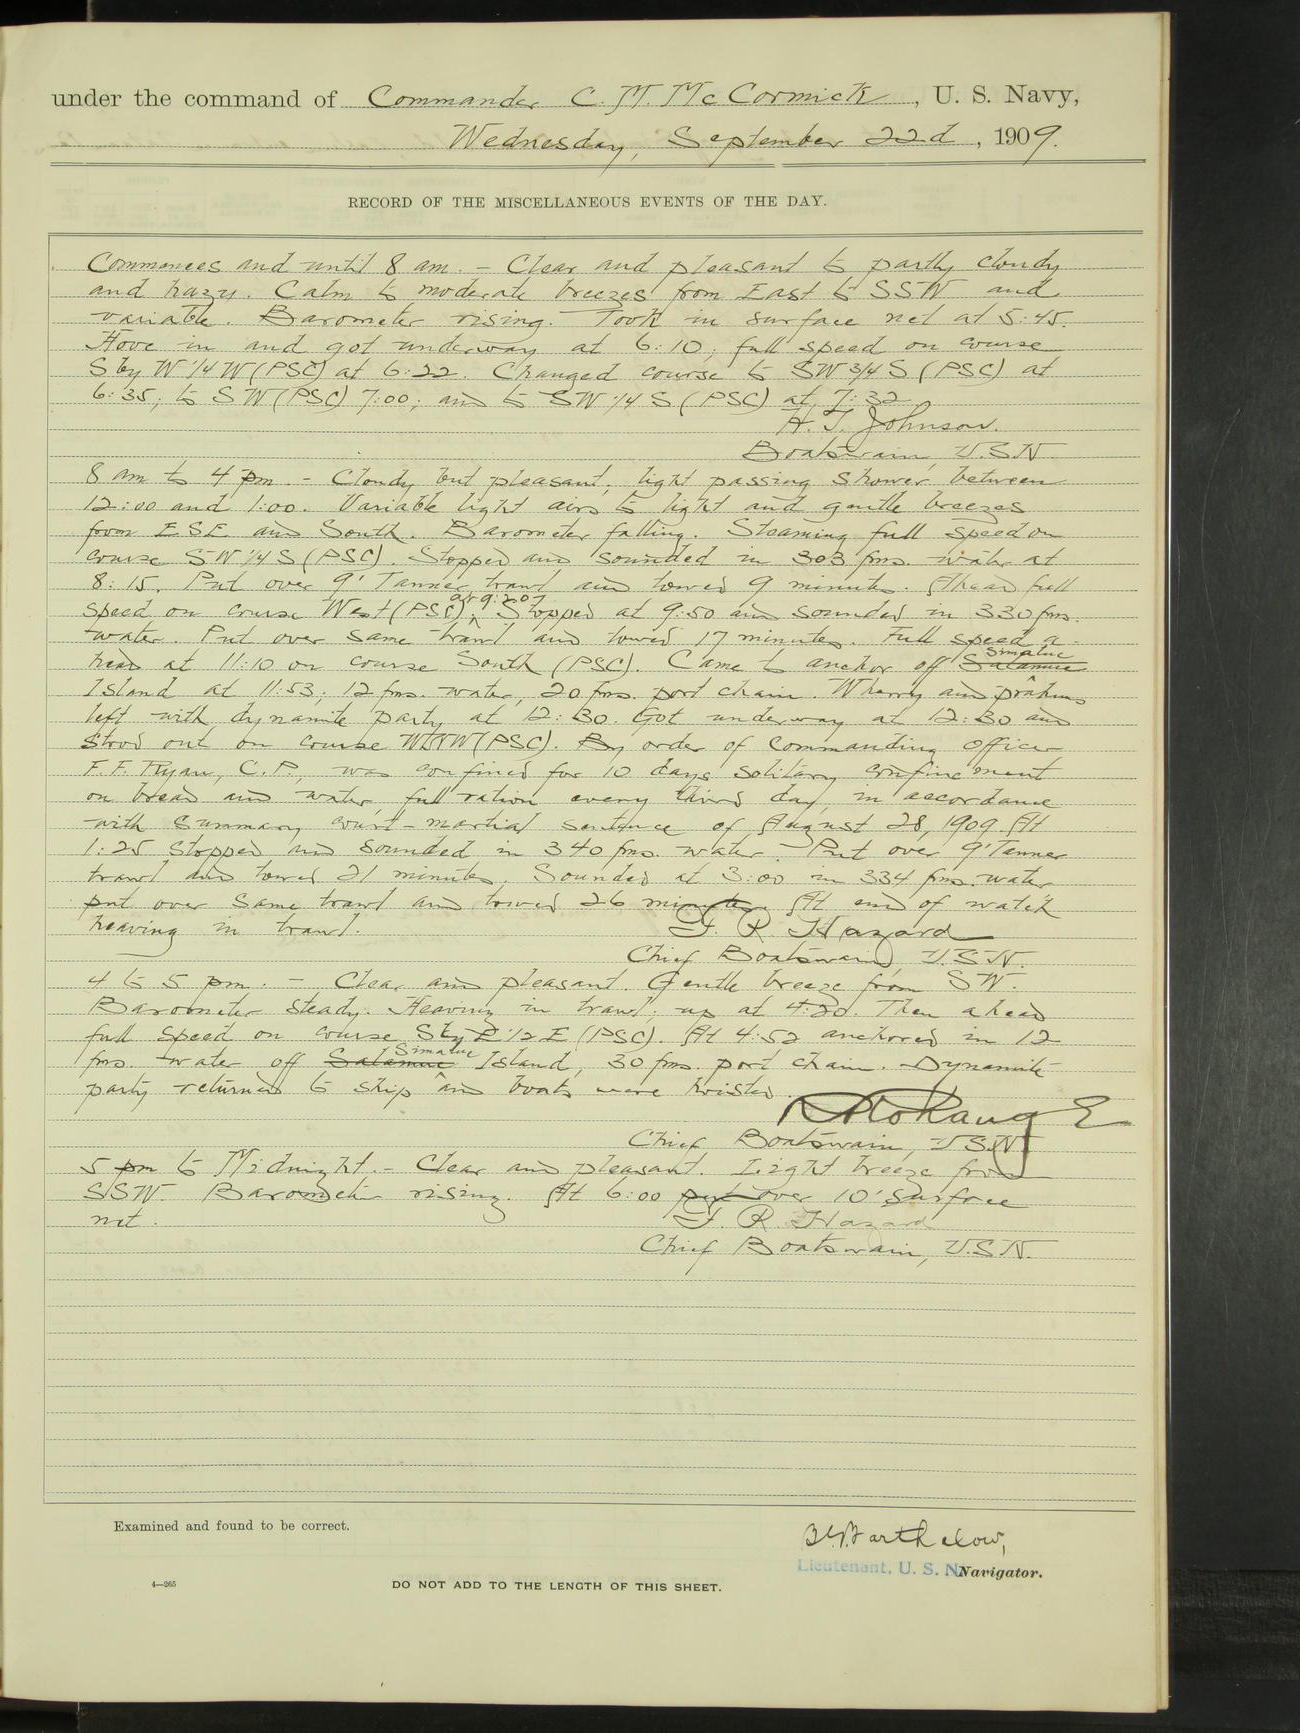 under the command of Commander C. M. McCormick, U. S. Navy,
Wednesday, September 22d, 1909.
RECORD OF THE MISCELLANEOUS EVENTS OF THE DAY.
Commences and until 8 am. - Clear and pleasant to partly cloudy
and hazy. Calm to moderate breezes from East to SSW and
variable. Barometer rising. Took in surface net at 5:45.
Hove in and got underway at 6:10, full speed on course
S by W 1/4 W (PSC) at 6:22. Changed course to SW 3/4 S (PSC) at
6:35; to SW (PSC) 7:00; and to SW 1/4 S (PSC) at 7:32
H. T. Johnson.
Boatswain, U.S.N.
8 am to 4 pm. - Cloudy but pleasant; light passing shower between
12:00 and 1:00. Variable light airs to light and gentle breezes
from ESE and South. Barometer falling. Steaming full speed on
course SW 1/4 S (PSC). Stopped and sounded in 303 fms. water at
8:15. Put over 9' Tanner trawl and towed 9 minutes. Ahead full
speed on course West (PSC) at 9:20. Stopped at 9:50 and sounded in 330 fms.
water. Put over same trawl and towed 17 minutes. Full speed a-
head at 11:10 on course South (PSC). Came to anchor off Salamue Simaluc
Island at 11:53; 12 fms. water, 20 fms. port chain. Wherry and prahms
left with dynamite party at 12:30. Got underway at 12:30 and
stood out on course WNW (PSC). By order of Commanding Officer
F. F. Ryan, C.P., was confined for 10 days solitary confinement
on bread and water, full ration every third day, in accordance
with summary court-martial sentence of August 28, 1909. At
1:25 stopped and sounded in 340 fms. water. Put over 9' Tanner
trawl and towed 21 minutes. Sounded at 3:00 in 334 fms. water
put over same trawl and towed 26 minutes. At end of watch
heaving in trawl.
F. R. Hazard
Chief Boatswain, U.S.N.
4 to 5 pm. - Clear and pleasant. Gentle breeze from SW.
Barometer steady. Heaving in trawl; up at 4:20. Then ahead
full speed on course S by E 1/2 E (PSC). At 4:52 anchored in 12
fms. water off Salamue Simaluc Island, 30 fms. port chain. Dynamite
party returned to ship and boats were hoisted.
Chief Boatswain, U.S.N.
5 pm to Midnight. - Clear and pleasant. Light breeze from
SSW. Barometer rising. At 6:00 put over 10' surface
net.
F. R. Hazard
Chief Boatswain, U.S.N.
Examined and found to be correct.
Barthalow,
Lieutenant, U. S. N. Navigator.
4—265
DO NOT ADD TO THE LENGTH OF THIS SHEET.